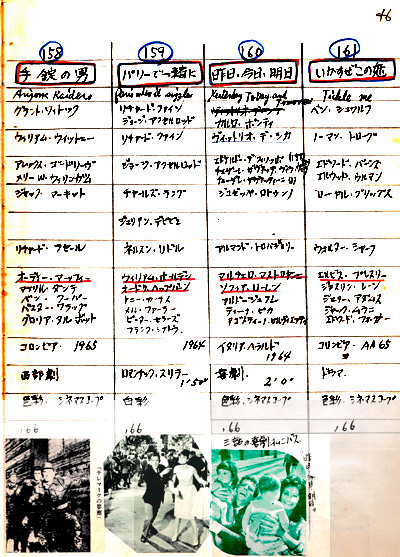 46
158
159
160
161
手錠の男
パリーで一緒に
昨日、今日、明日
いかすぜこの恋
Arizona Raiders
Paris when it sizzles
Yesterday Today and
Tomorrow
Tickle me
グラント・ウィトロック
リチャード・クワイン
ジョージ・アクセルロッド
カルロ・ポンティ
ベン・シュワルブ
ウィリアム・ウィットニー
リチャード・クワイン
ヴィットリオ・デ・シカ
ノーマン・トローグ
アレックス・ゴードリーヴ
メリー・W・ウィリンガム
ジョージ・アクセルロッド
エドワード・バーンズ
エルウッド・ウルマン
ジャック・マーキット
チャールズ・ラング
ジュゼッペ・ロトゥンノ
ローヤル・グリッグス
リチャード・ラセール
ネルスン・リドル
アルマンド・トロバヨーリ
ウォルター・シャーフ
オーディー・マーフィー
マイケル・ダンテ
ベン・クーパー
バスター・クラッブ
グロリア・タルボット
ウィリアム・ホールデン
オードリィ・ヘップバーン
トニー・カーチス
メル・ファーラー
ピーター・セラーズ
フランク・シナトラ
マルチェロ・マストロヤンニ
ソフィア・ローレン
アルド・ジュフレ
ティーナ・ピカ
エルビス・プレスリー
ジョスリン・レーン
ジェリー・アダムス
ジャック・ムラニー
コロンビア 1965
1964
イタリア、ヘラルド
1964
コロンビア AA65
西部劇
ロマンチック・スリラー
1°50'
喜劇 2°0'
ドラマ
色彩、シネマスコープ
色彩
色彩、シネマスコープ
色彩、シネマスコープ
'66
'66
'66
'66
三話の喜劇オムニバス
昨日今日明日
「テレマークの要塞」